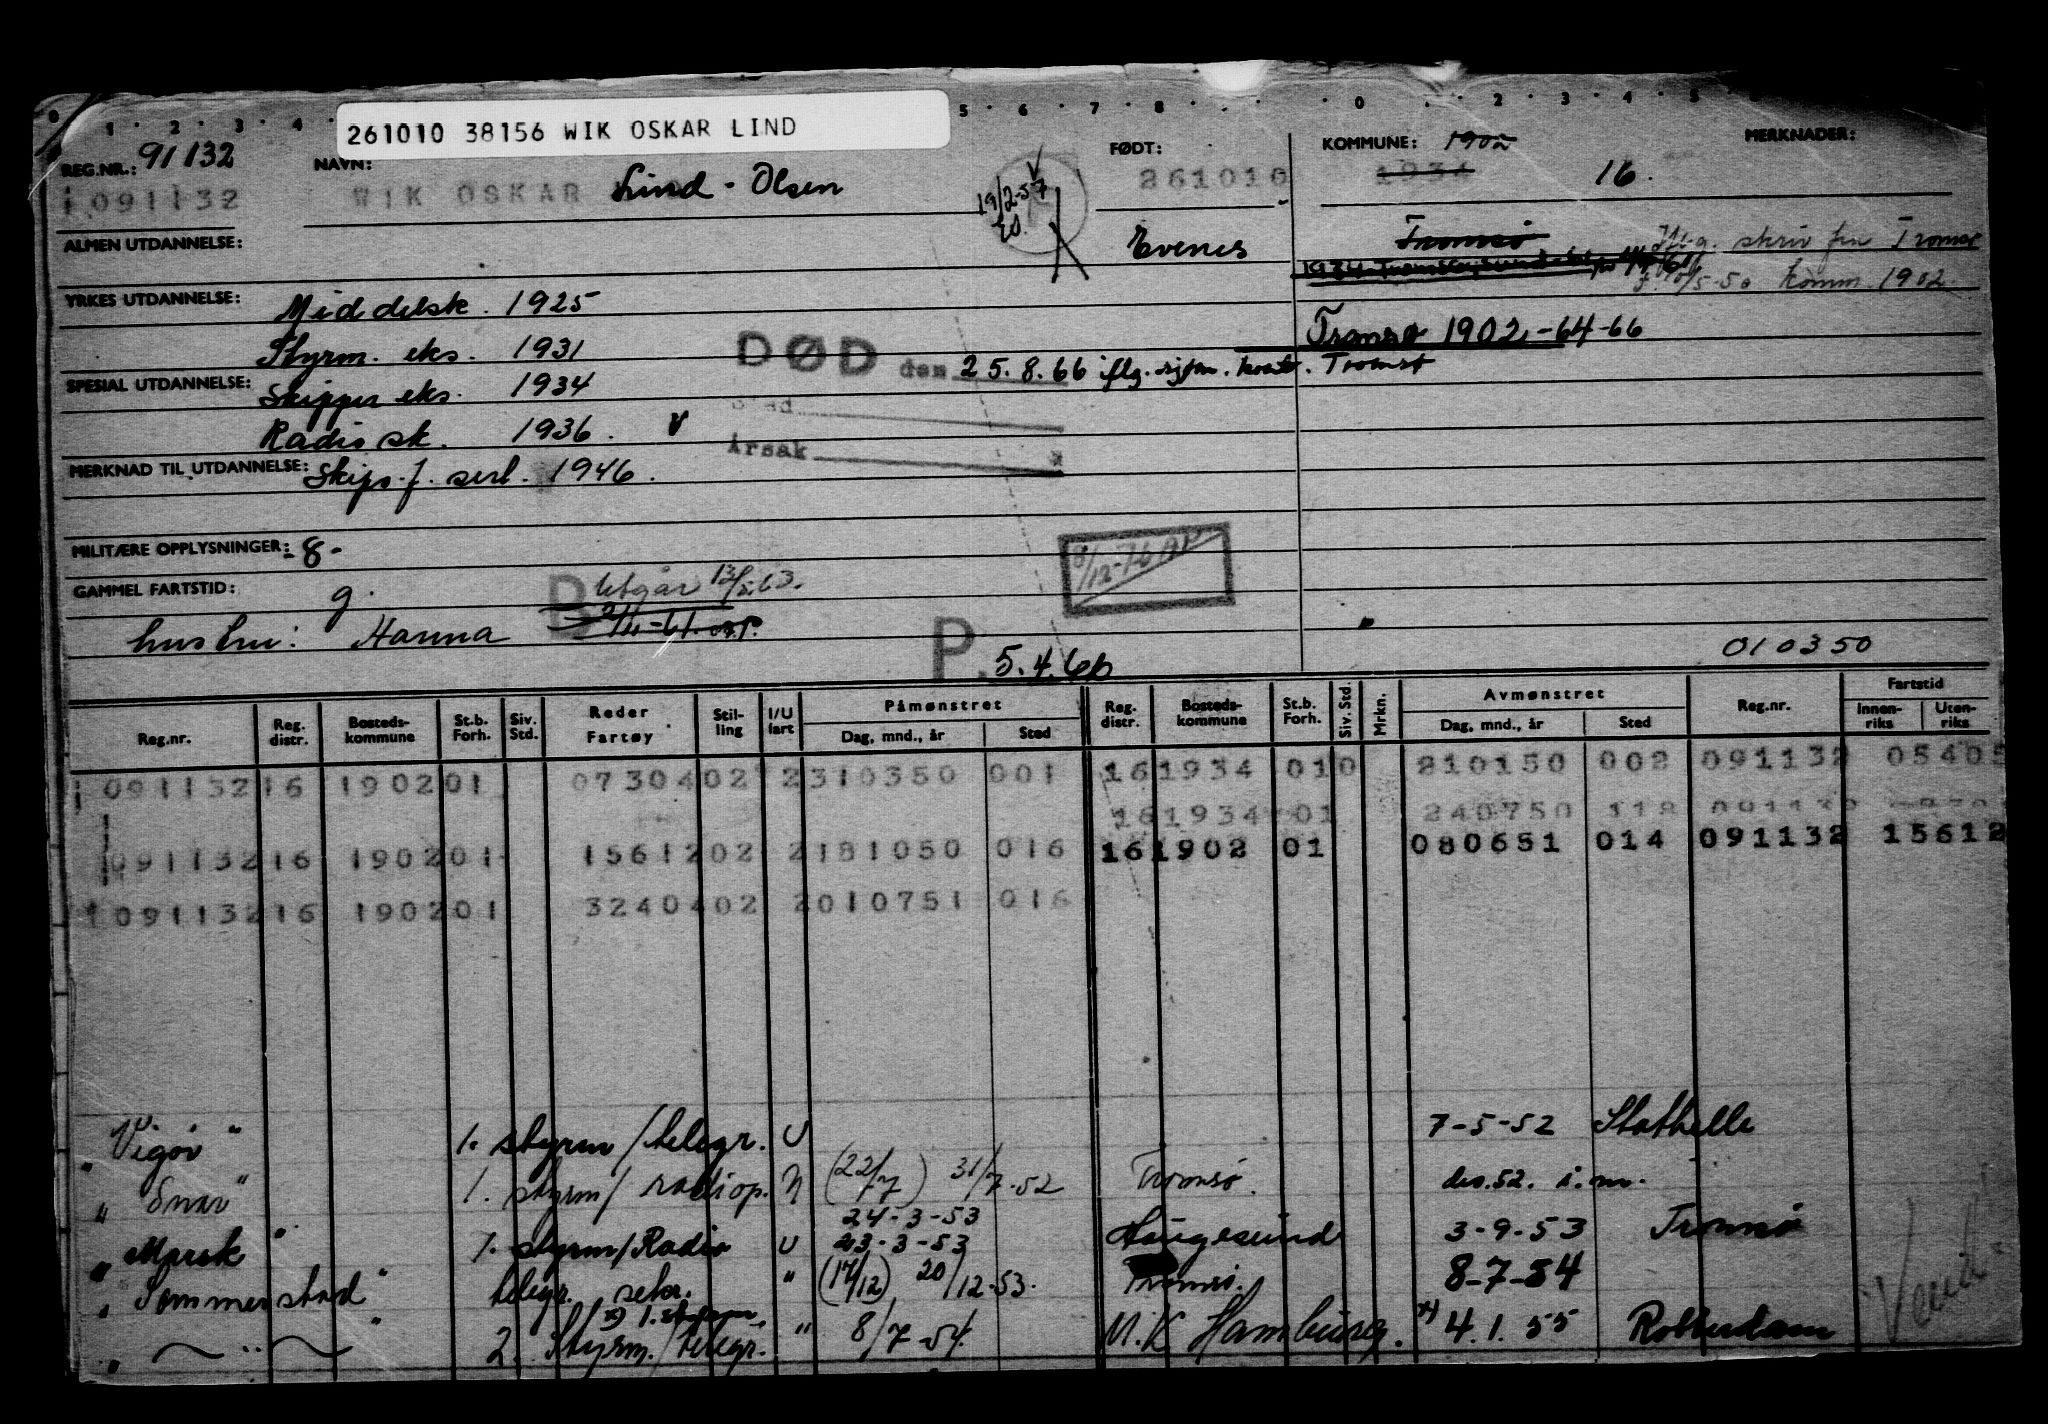 261010 38156 WIK OSKAR LIND
REG.NR.: 91132
i 091132
NAVN:
WIK OSKAR Lind - Olsen
19/2-57
FØDT:
261010
Evenes
KOMMUNE: 1902
1934
16.
MERKNADER:
Tromsø
skriv fra Tromsø
komm. 1902
Tromsø 1902-64-66
ALMEN UTDANNELSE:
YRKES UTDANNELSE: Middelsk. 1925
Styrm. eks. 1931
SPESIAL UTDANNELSE: Skipper eks. 1934
Radio sk. 1936. V
MERKNAD TIL UTDANNELSE: Skips.f. sert. 1946.
DØD den 25.8.66 iflg. sjøm. kont. Tromsø
Sted
Årsak
MILITÆRE OPPLYSNINGER: 8-
GAMMEL FARTSTID: g.
hustru: Hanna
D Utgår
P. 5.4.66
010350
Reg.nr. Reg. distr. Bosteds-kommune St.b. Forh. Siv. Std. Reder Fartøy Stil-ling I/U fart Påmønstret Dag, mnd., år Sted Reg. distr. Bosteds-kommune St.b. Forh. Siv. Std. Mrkn. Avmønstret Dag, mnd., år Sted Reg.nr. Fartstid Innen-riks Uten-riks
i 091132 16 1902 01 07304 02 2 310350 001 16 1934 01 0 210150 002 091132 05405
16 1934 01 240750 118 091132
091132 16 1902 01 15612 02 2 181050 016 16 1902 01 080651 014 091132 15612
091132 16 1902 01 32404 02 2 010751 016
" Vigör " 1. styrm/telegr. U 7-5-52 Stathelle
" Snar " 1. styrm/radiop. N (22/7) 31/7-52 Tromsø. des. 52. i.m.
24-3-53
" Marsk " 1. styrm/Radio U 23-3-53 Haugesund 3-9-53 Tromsø
" Sommerstad " telegr. sekr. " (17/12) 20/12-53. Tromsø. 8-7-54
" " 2. Styrm./telegr. " 8/7-54 M.K Hamburg. x) 4.1.55 Rotterdam
Vend!